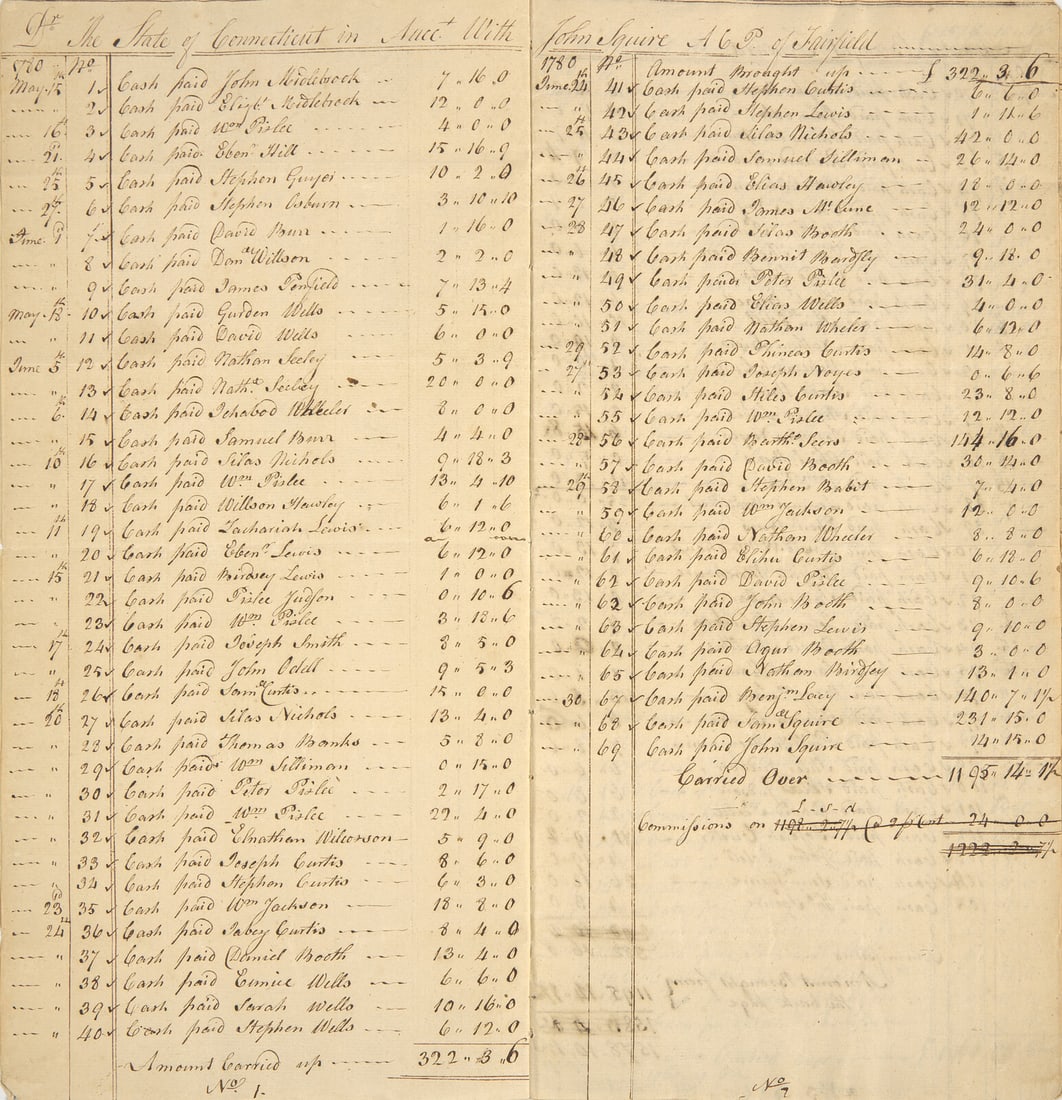 Dr The State of Connecticut in Acct With
1780 No
May 15 1 Cash paid John Midlebrook 7 " 16 " 0
" 2 Cash paid Eligh Midlebrook 12 " 0 " 0
16th 3 Cash paid Wm Pislee 4 " 0 " 0
21 4 Cash paid Ebenr Hill 15 " 16 " 9
25th 5 Cash paid Stephen Guyer 10 " 2 " 0
27th 6 Cash paid Stephen Osburn 3 " 10 " 10
June 1 7 Cash paid David Burr 1 " 16 " 0
" 8 Cash paid Danll Willson 2 " 2 " 0
" 9 Cash paid James Penfield 7 " 13 " 4
May 18th 10 Cash paid Gurden Wells 5 " 15 " 0
" 11 Cash paid David Wells 6 " 0 " 0
June 5th 12 Cash paid Nathan Seeley 5 " 3 " 9
" 13 Cash paid Nathll Seeley 20 " 0 " 0
6th 14 Cash paid Ichabod Wheeler 8 " 0 " 0
" 15 Cash paid Samuel Burr 4 " 4 " 0
10th 16 Cash paid Silas Nichols 9 " 18 " 3
" 17 Cash paid Wm Pislee 13 " 4 " 10
" 18 Cash paid Willson Hawley 6 " 1 " 6
11th 19 Cash paid Zachariah Lewis 6 " 12 " 0
" 20 Cash paid Ebenr Lewis 6 " 12 " 0
15th 21 Cash paid Birdsey Lewis 1 " 0 " 0
" 22 Cash paid Pislee Judson 0 " 10 " 6
" 23 Cash paid Wm Pislee 3 " 18 " 6
17th 24 Cash paid Joseph Smith 8 " 5 " 0
" 25 Cash paid John Odell 9 " 5 " 3
18th 26 Cash paid Samll Curtis 15 " 0 " 0
20th 27 Cash paid Silas Nichols 13 " 4 " 0
" 28 Cash paid Thomas Banks 5 " 8 " 0
" 29 Cash paid Wm Silliman 0 " 15 " 0
" 30 Cash paid Peter Pislee 2 " 17 " 0
" 31 Cash paid Wm Pislee 22 " 4 " 0
" 32 Cash paid Elnathan Wilcorson 5 " 9 " 0
" 33 Cash paid Joseph Curtis 8 " 6 " 0
" 34 Cash paid Stephen Curtis 6 " 3 " 0
23d 35 Cash paid Wm Jackson 18 " 8 " 0
24th 36 Cash paid Jabey Curtis 8 " 4 " 0
" 37 Cash paid Daniel Booth 13 " 4 " 0
" 38 Cash paid Eunice Wells 6 " 6 " 0
" 39 Cash paid Sarah Wells 10 " 16 " 0
" 40 Cash paid Stephen Wells 6 " 12 " 0
Amount Carried up 322 " 3 " 6
No 1.
John Squire A C P. of Fairfield
1780 No Amount Brought up £ 322 " 3 " 6
June 24th 41 Cash paid Stephen Curtis 6 " 6 " 0
" 42 Cash paid Stephen Lewis 1 " 11 " 6
25th 43 Cash paid Silas Nichols 42 " 0 " 0
" 44 Cash paid Samuel Silliman 26 " 14 " 0
26th 45 Cash paid Elias Hawley 18 " 0 " 0
27 46 Cash paid James McCune 12 " 12 " 0
28 47 Cash paid Silas Booth 24 " 0 " 0
" 48 Cash paid Bennit Bardsly 9 " 18 " 0
" 49 Cash paid Peter Pislee 31 " 4 " 0
" 50 Cash paid Elias Wells 4 " 0 " 0
" 51 Cash paid Nathan Wheler 6 " 12 " 0
29 52 Cash paid Phineas Curtis 14 " 8 " 0
27 53 Cash paid Joseph Noyes 0 " 6 " 6
" 54 Cash paid Stiles Curtis 23 " 8 " 0
" 55 Cash paid Wm Pislee 12 " 12 " 0
28 56 Cash paid Barthw Seers 144 " 16 " 0
" 57 Cash paid David Booth 30 " 14 " 0
29th 58 Cash paid Stephen Babit 7 " 4 " 0
" 59 Cash paid Wm Jackson 12 " 0 " 0
" 60 Cash paid Nathan Wheeler 8 " 8 " 0
" 61 Cash paid Elihu Curtis 6 " 18 " 0
" 62 Cash paid David Pislee 9 " 10 " 6
" 62 Cash paid John Booth 8 " 0 " 0
" 63 Cash paid Stephen Lewis 9 " 10 " 0
" 64 Cash paid Agur Booth 3 " 0 " 0
" 65 Cash paid Nathan Birdsey 13 " 1 " 0
30 67 Cash paid Benjm Lacy 140 " 7 " 1½
" 68 Cash paid Samll Squire 231 " 15 " 0
" 69 Cash paid John Squire 14 " 15 " 0
Carried Over 1195 " 14 " 1½
£ - s - d
Commissions on 1198 " 2 " 7½ @ 2 pr Cent 24 " 0 " 0
1222 " 2 " 7½
No 2